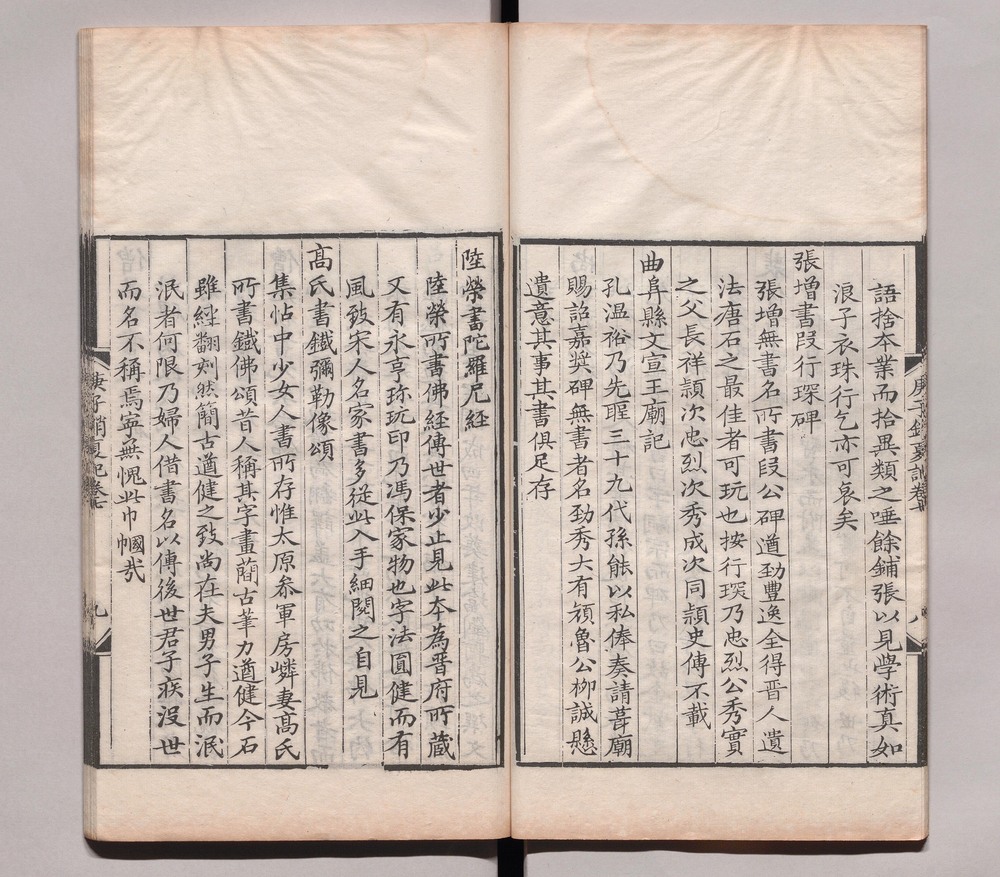 語捨本業而拾異類之唾餘鋪張以見學術真如
浪子衣珠行乞亦可哀矣
張增書段行琛碑
張增無書名所書段公碑遒勁豐逸全得晉人遺
法唐石之最佳者可玩也按行琛乃忠烈公秀實
之父長祥頴次忠烈次秀成次同頴史傳不載
曲阜縣文宣王廟記
孔温裕乃先聖三十九代孫能以私俸奏請葺廟
賜詔嘉奬碑無書者名勁秀大有顔魯公柳誠懸
遺意其事其書俱足存
庚子銷夏記卷
八
陸榮書陀羅尼經
陸榮所書佛經傳世者少止見此本為晋府所蔵
又有永亨珎玩印乃馮保家物也字法圓健而有
風致宋人名家書多從此入手細閱之自見
高氏書鐵彌勒像頌
集帖中少女人書所存惟太原叅軍房嶙妻高氏
所書鐡佛頌昔人稱其字畫蕳古筆力遒健今石
雖經翻刻然簡古遒健之致尚在夫男子生而泯
泯者何限乃婦人借書名以傳後世君子疾沒世
而名不稱焉寧無愧此巾幗㢤
庚子銷夏記卷
九